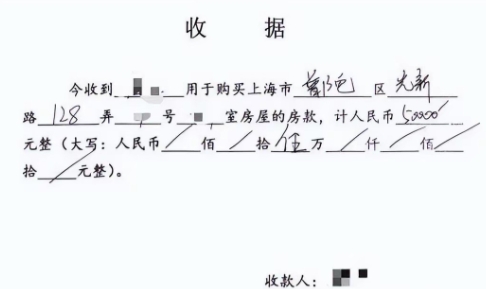 收 据
今收到 用于购买上海市 区 光新
路 128 弄 号 室房屋的房款，计人民币 50000
元整（大写：人民币 / 佰 / 拾 伍 万 / 仟 / 佰 /
拾 / 元整）。
收款人：